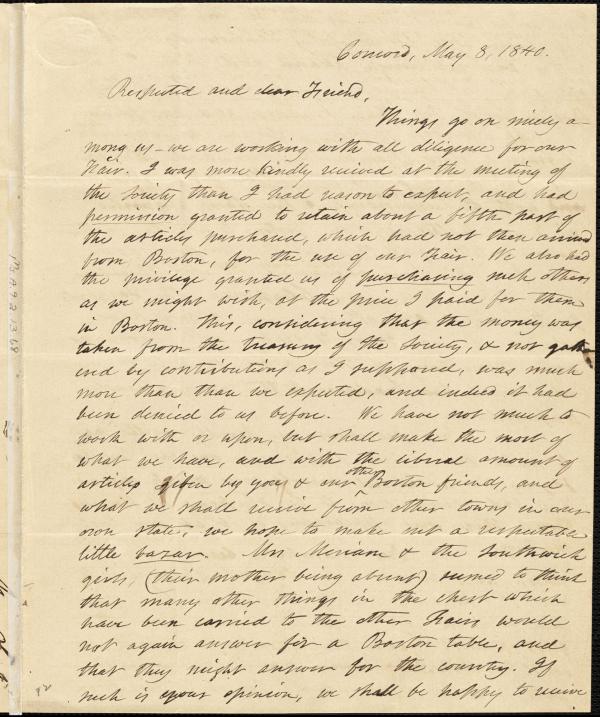 Concord, May 8, 1840.
Respected and dear Friend,
Things go on nicely a-
mong us - we are working with all diligence for our
Fair. I was more kindly received at the meeting of
the Society than I had reason to expect, and had
permission granted to retain about a fifth part of
the articles purchased, which had not then arrived
from Boston, for the use of our Fair. We also had
the privilege granted us of purchasing such others
as we might wish, at the price I paid for them
in Boston. This, considering that the money was
taken from the treasury of the Society, & not gath
ered by contributions as I supposed, was much
more than than we expected, and indeed it had
been denied to us before. We have not much to
work with or upon, but shall make the most of
what we have, and with the liberal amount of
articles given by you & our other Boston friends, and
what we shall receive from other towns in our
own state, we hope to make out a respectable
little bazar. Mrs Meriam & the Southwick
girls, (their mother being absent) seemed to think
that many other things in the chest which
have been carried to the other Fairs would
not again answer for a Boston table, and
that they might answer for the country. If
such is your opinion, we shall be happy to receive